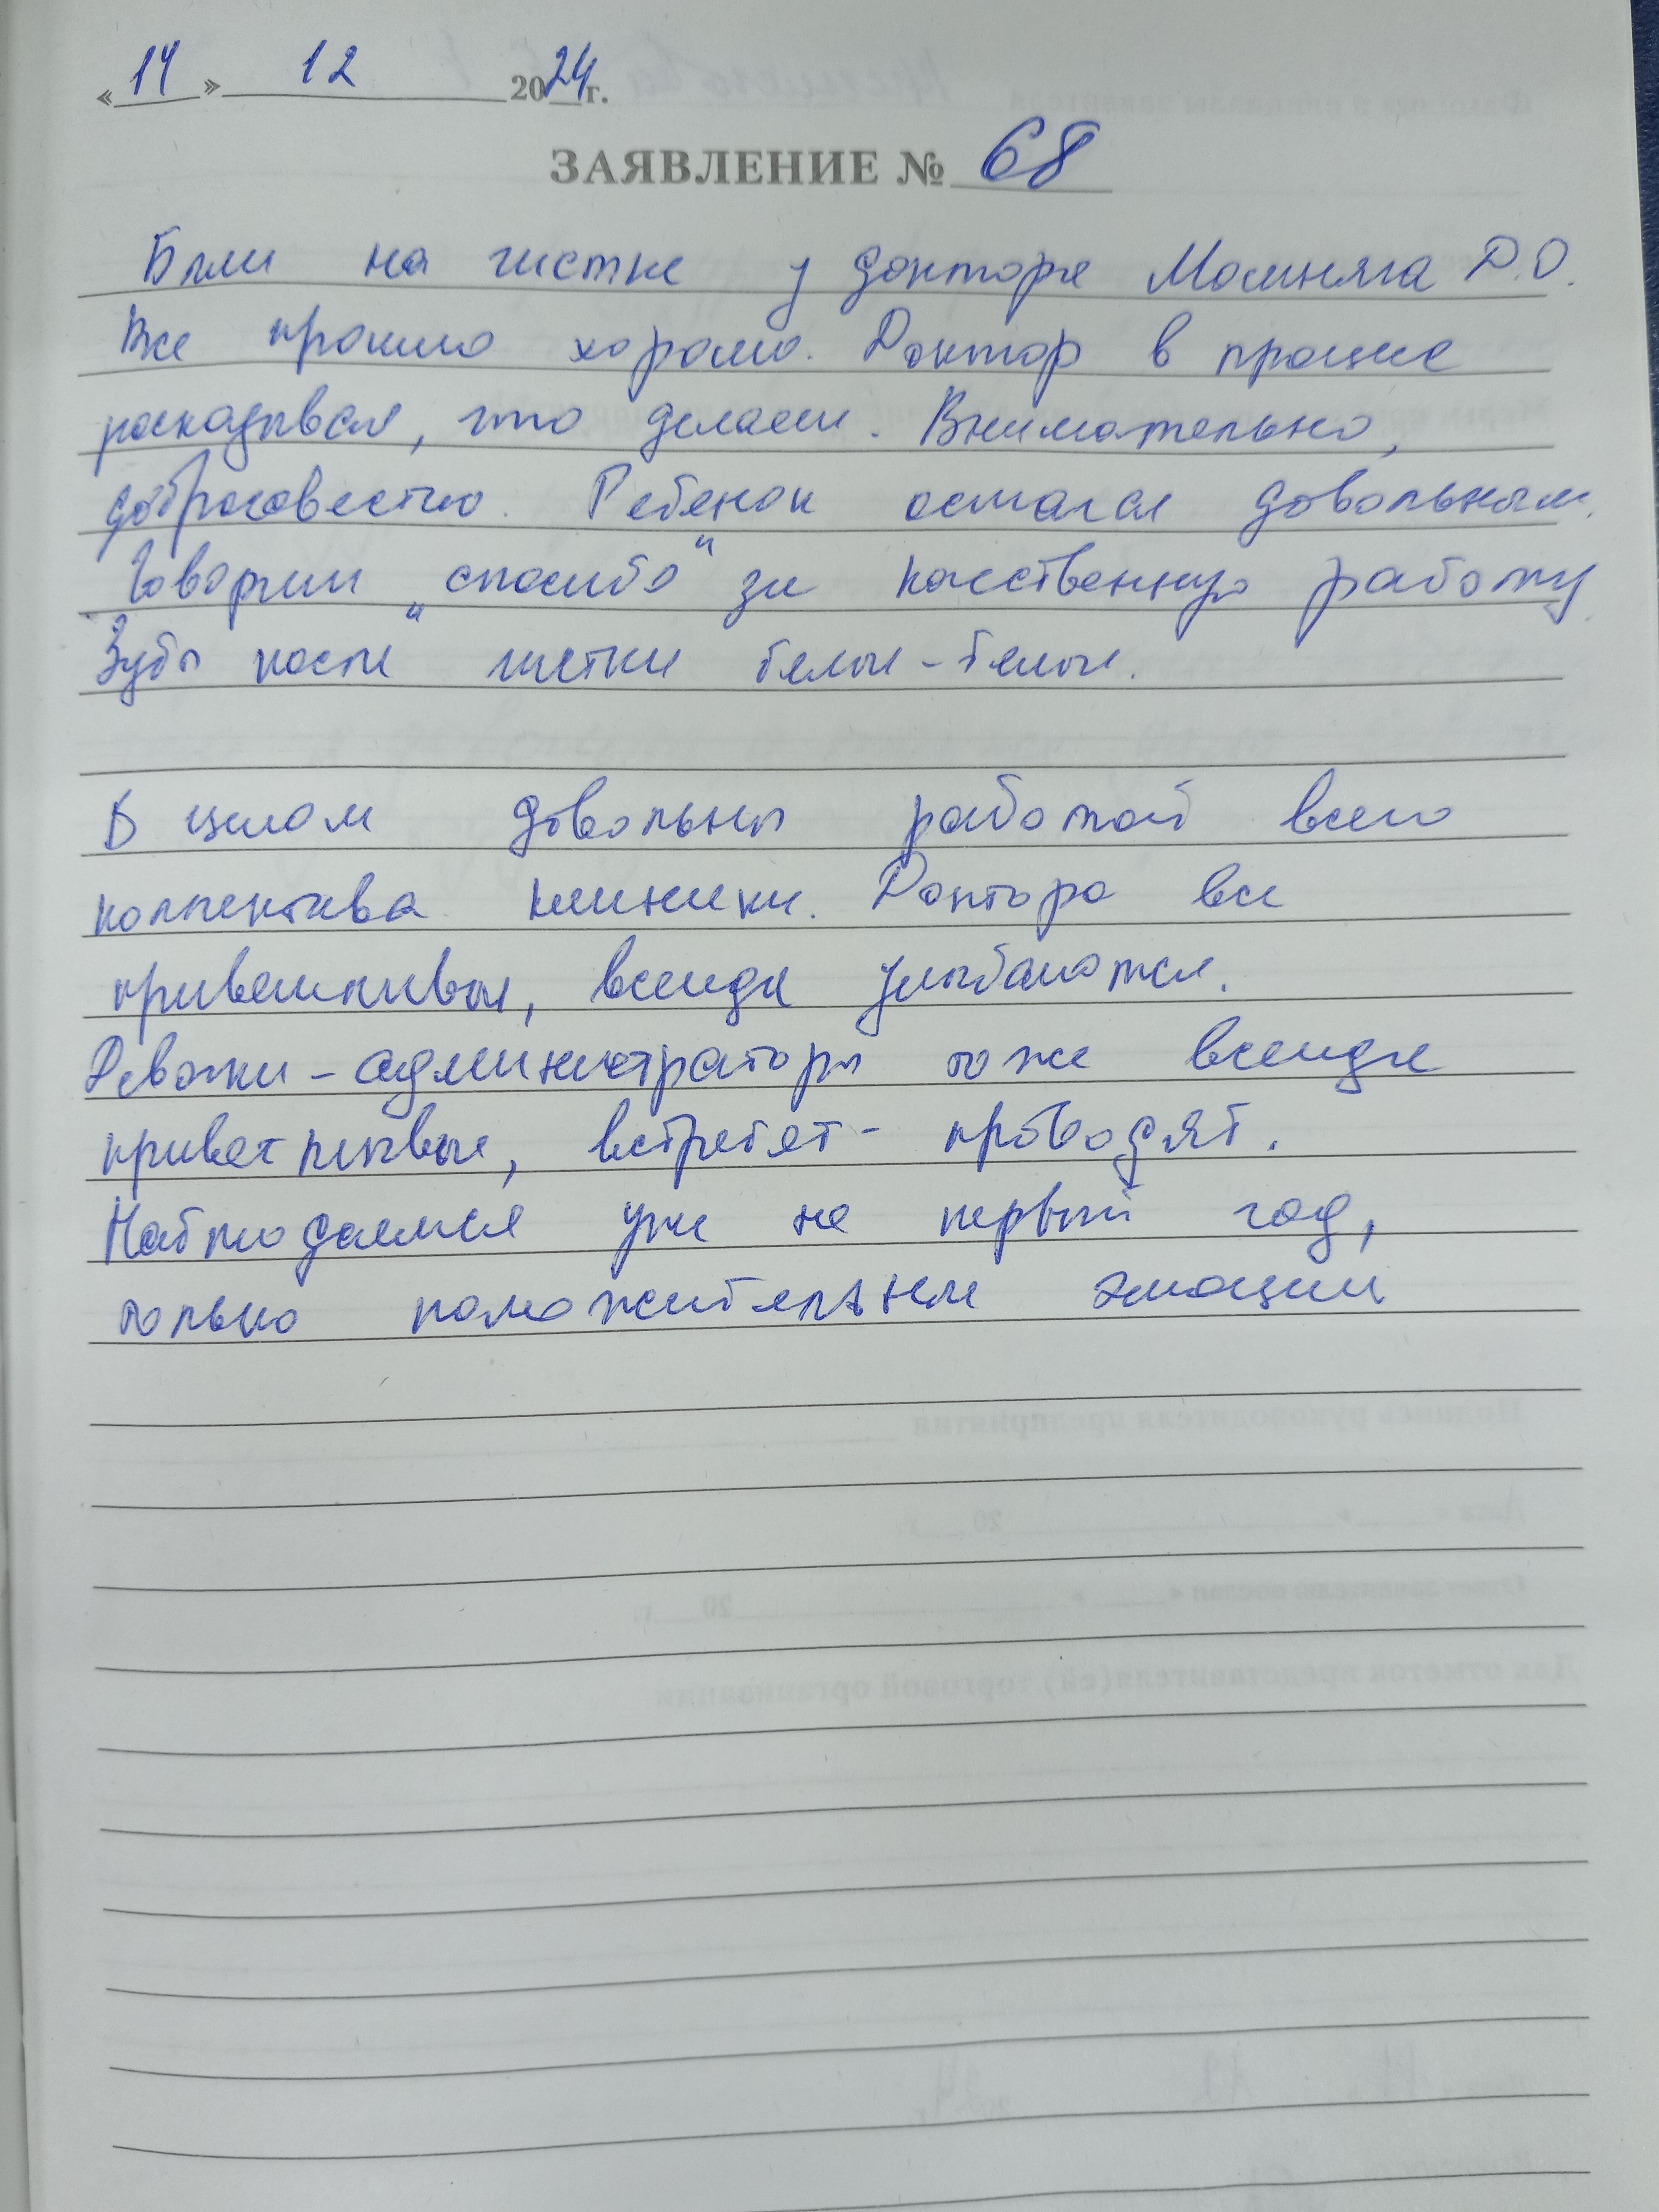 «14» 12 2024г.
ЗАЯВЛЕНИЕ № 68
Были на чистке у доктора Д.О.
Все прошло хорошо. Доктор в процессе
рассказывал, что делает. Внимательно,
добросовестно. Ребенок остался довольным.
Говорим "спасибо" за качественную работу.
Зубы после чистки белые-белые.
В целом довольны работой всего
коллектива клиники. Доктора все
приветливые, всегда улыбаются.
Девочки-администраторы тоже всегда
приветливые, встретят - проводят.
Наблюдаемся уже не первый год,
только положительные эмоции